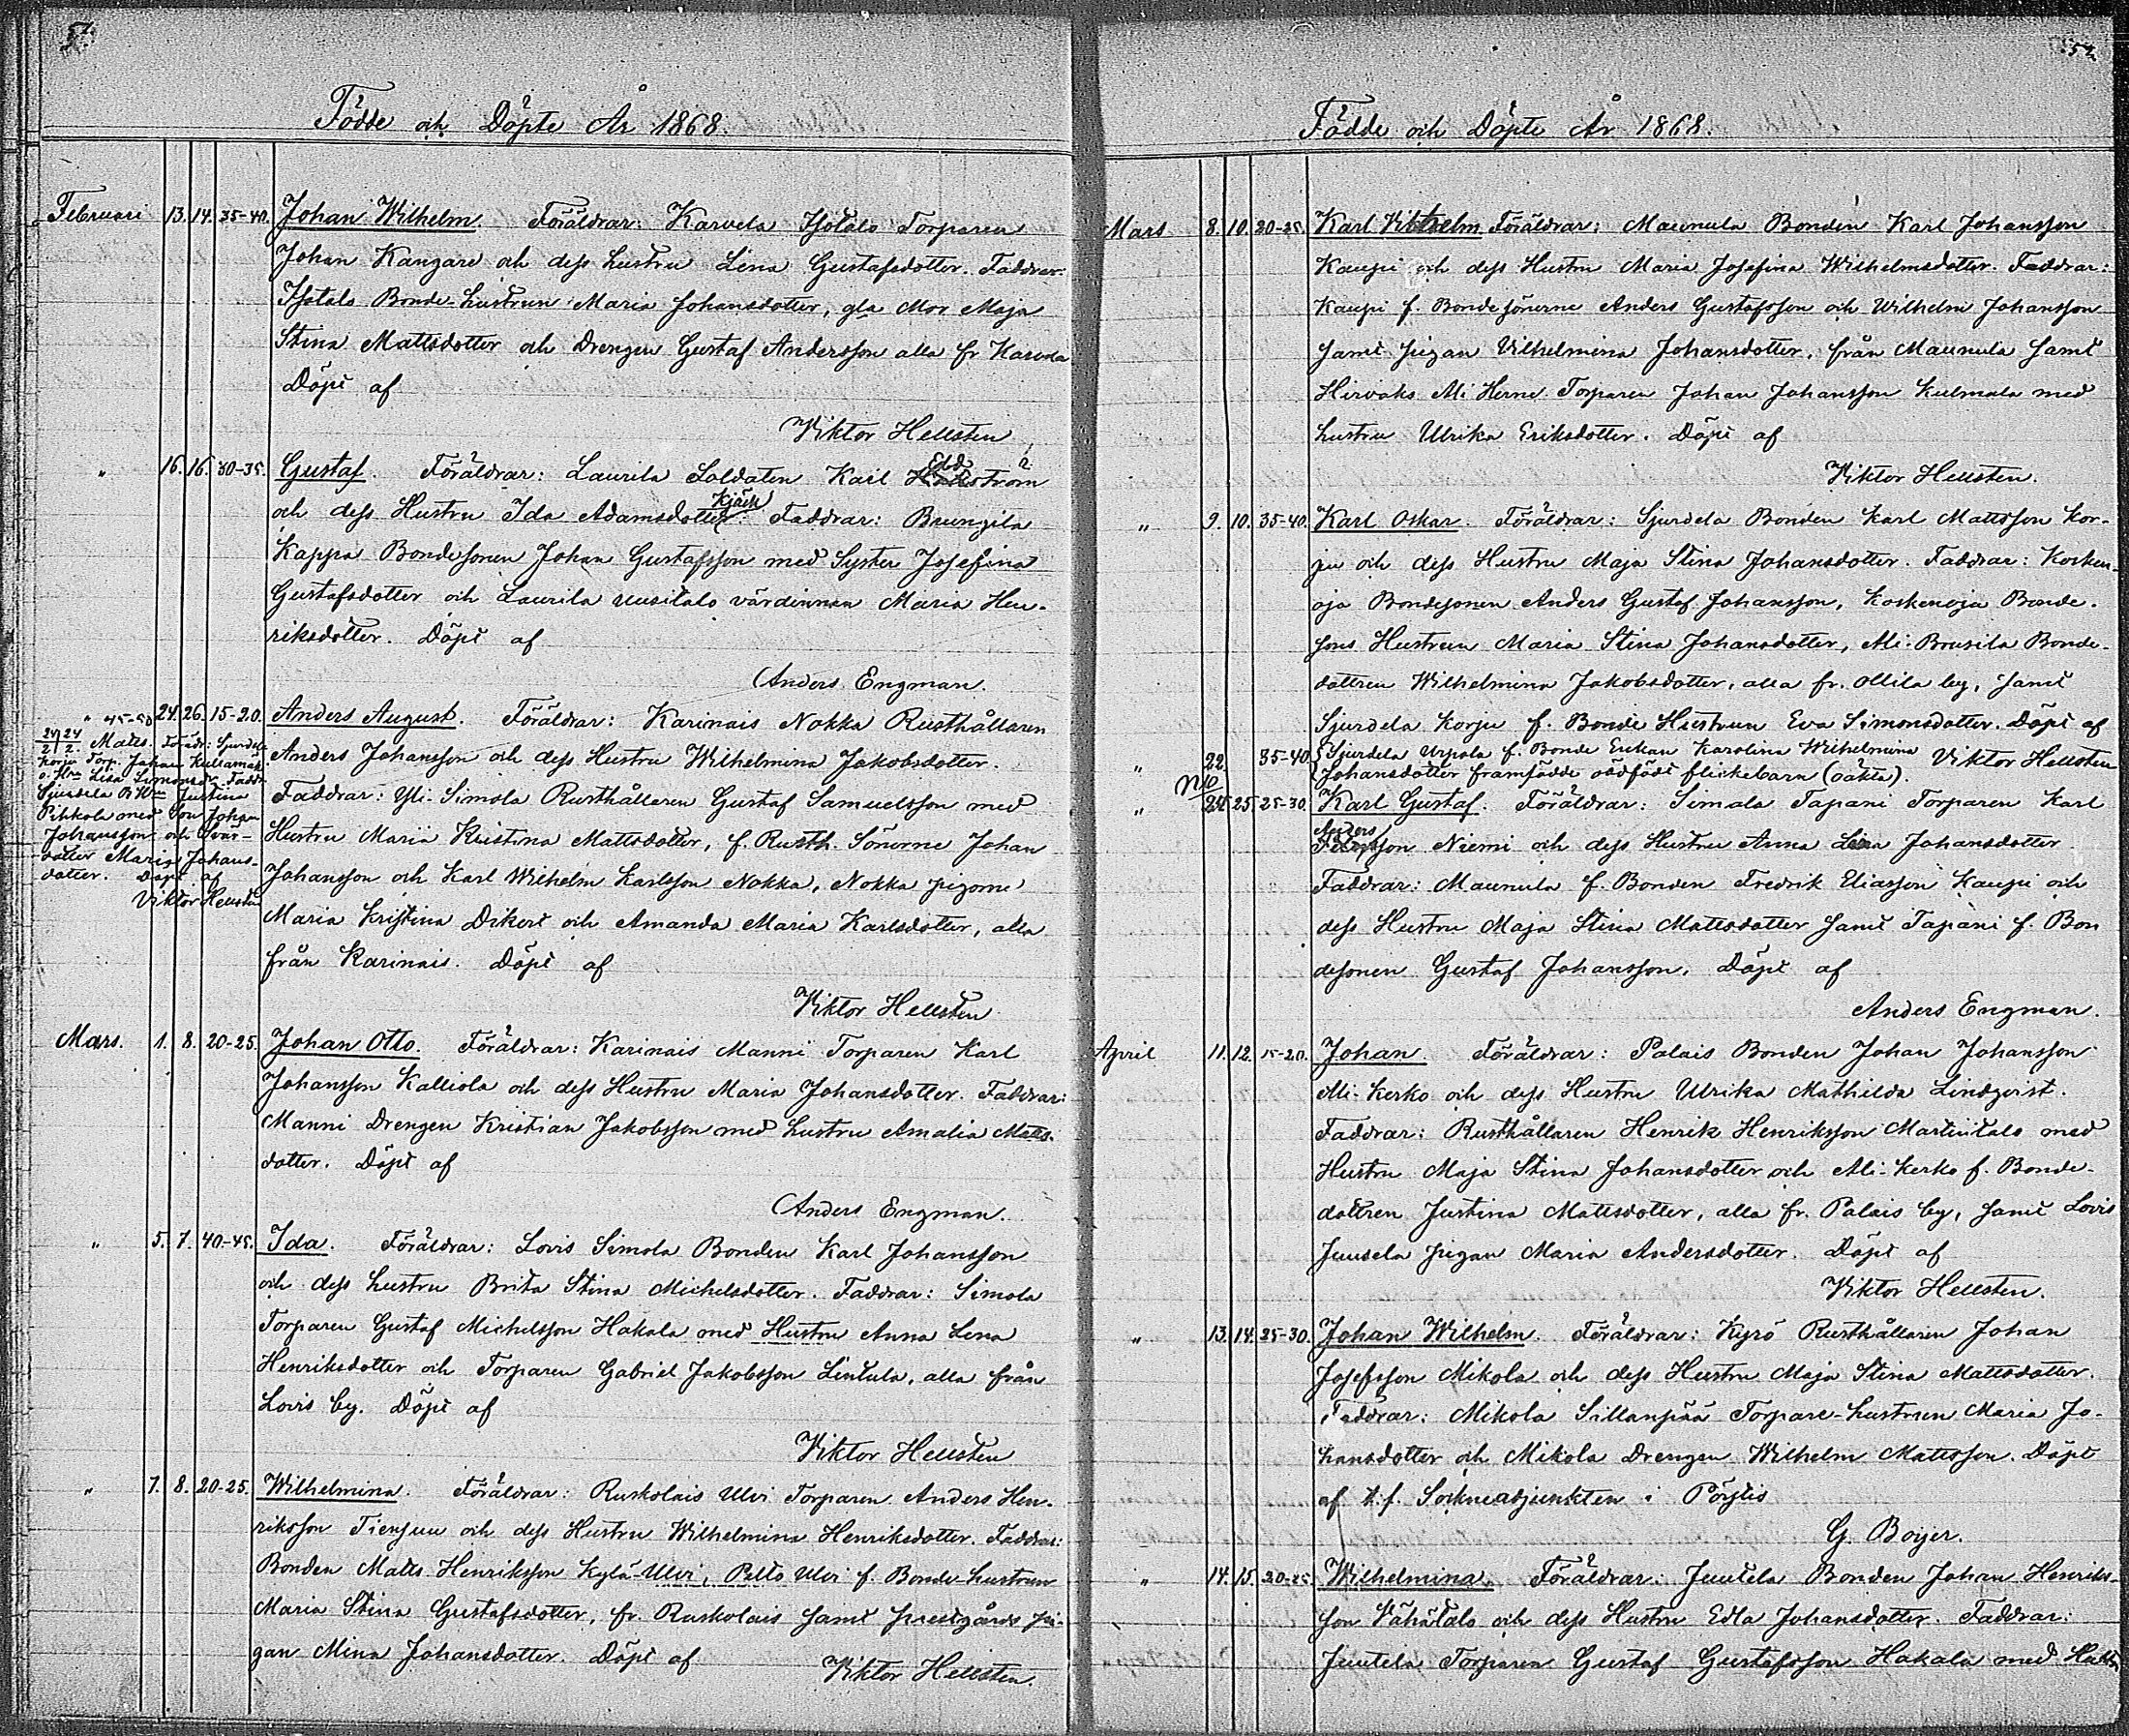 51.
Födde och Döpte År 1868.
Februari 13. 14. 35-40. Johan Wilhelm. Föräldrar: Karvela Isotalo Torparen
Johan Kangare och dess hustru Lena Gustafsdotter. Faddrar:
Isotalo Bonde-hustrun Maria Johansdotter, gla Mor Maja
Stina Mattsdotter och Drengen Gustaf Andersson alla fr Karvela
Döpt af
Viktor Hellsten
" 16. 16. 30-35. Gustaf. Föräldrar: Laurila Soldaten Karl Edström
och dess Hustru Ida Adamsdotter Kjäck. Faddrar: Brungila
Kappa Bondesonen Johan Gustafsson med Syster Josefina
Gustafsdotter och Laurila uusitalo värdinnan Maria Hen-
riksdotter. Döpt af
Anders Engman.
" 45-50
24/2 24/2. Matts. Föräldr: Sjurdela
Korju Torp. Johan Kullamaa
o. Hu Lisa Simonsdr Faddr.
Sjurdela Justina
Pihkola med Son Johan
Johansson och Svär-
dotter Maria Johans-
dotter. Döpt af
Viktor Hellsten
24. 26. 15-20. Anders August. Föräldrar: Karinais Nokka Rusthållaren
Anders Johansson och dess Hustru Wilhelmina Jakobsdotter.
Faddrar: Yli-Simola Rusthållaren Gustaf Samuelsson med
Hustru Maria Kristina Mattsdotter, f. Rusth. Sönerne Johan
Johansson och Karl Wilhelm Karlsson Nokka, Nokka pigorne
Maria Kristina Dikert och Amanda Maria Karlsdotter, alla
från Karinais. Döpt af
Viktor Hellsten
Mars. 1. 8. 20-25. Johan Otto. Föräldrar: Karinais Manni Torparen Karl
Johansson Kalliola och dess Hustru Maria Johansdotter. Faddrar:
Manni Drengen Kristian Jakobsson med hustru Amalia Matts-
dotter. Döpt af
Anders Engman.
" 5. 7. 40-45. Ida. Föräldrar: Lovis Simola Bonden Karl Johansson
och dess hustru Brita Stina Michelsdotter. Faddrar: Simola
Torparen Gustaf Michelsson Hakala med Hustru Anna Lena
Henriksdotter och Torparen Gabriel Jakobsson Lintula, alla från
Lovis by. Döpt af
Viktor Hellsten
" 7. 8. 20-25. Wilhelmina. Föräldrar: Ruskolais Ulvi Torparen Anders Hen-
riksson Tiensuu och dess Hustru Wilhelmina Henriksdotter. Faddrar:
Bonden Matts Henriksson Kylä-Ulvi, Pelto Ulvi f. Bonde-hustrun
Maria Stina Gustafsdotter, fr. Ruskolais samt prestgårds pi-
gan Mina Johansdotter. Döpt af
Viktor Hellsten.
52.
Födde och Döpte År 1868.
Mars 8. 10. 20-25. Karl Vilhelm Föräldrar: Maunula Bonden Karl Johansson
Kaupi och dess Hustru Maria Josefina Wilhelmsdotter. Faddrar:
Kaupi f. Bondesönerne Anders Gustafsson och Wilhelm Johansson
samt pigan Vilhelmina Johansdotter, från Maunula samt
Hirvoks Ali Herne Torparen Johan Johansson Kulmala med
hustru Ulrika Eriksdotter. Döpt af
Viktor Hellsten.
" 9. 10. 35-40. Karl Oskar. Föräldrar: Sjurdela Bonden Karl Mattsson Kor-
ju och dess Hustru Maja Stina Johansdotter. Faddrar: Kosken-
oja Bondesonen Anders Gustaf Johansson, Koskenoja Bonde-
sons Hustrun Maria Stina Johansdotter, Ali-Brusila Bonde-
dottren Wilhelmina Jakobsdotter, alla fr. Ollila by, samt
Sjurdela Korju f. Bonde Hustrun Eva Simonsdotter. Döpt af
Viktor Hellsten
" 22. 35-40 Sjurdela Urpola f. Bonde Enkan Karolina Wilhelmina
Johansdotter framfödde oödfödt flickebarn (oäkta).
" 24. 25. 25-30. Karl Gustaf. Föräldrar: Simala Tapani Torparen Karl
Andersson Niemi och dess Hustru Anna Lena Johansdotter
Faddrar: Maunula f. Bonden Fredrik Eliasson Kaupi och
dess Hustru Maja Stina Mattsdotter samt Tapani f. Bon
desonen Gustaf Johansson. Döpt af
Anders Engman.
April 11. 12. 15-20. Johan. Föräldrar: Palais Bonden Johan Johansson
Ali-Kerko och dess Hustru Ulrika Mathilda Lindqvist.
Faddrar: Rusthållaren Henrik Henriksson Martintalo med
Hustru Maja Stina Johansdotter och Ali-Kerko f. Bonde-
dottren Justina Mattsdotter, alla fr. Palais by, samt Lovis
Juusela pigan Maria Andersdotter. Döpt af
Viktor Hellsten.
" 13. 14. 25-30. Johan Wilhelm. Föräldrar: Kyrö Rusthållaren Johan
Josefsson Mikola och dess Hustru Maja Stina Mattsdotter.
Faddrar: Mikola Sillanpää Torpare-hustrun Maria Jo-
hansdotter och Mikola Drengen Wilhelm Mattsson. Döpt
af t.f. Sockneadjunkten i Pöytis
G. Boijer.
" 14. 15. 20-25 Wilhelmina. Föräldrar: Juutela Bonden Johan Henriks-
son Vähätalo och dess Hustru Edla Johansdotter. Faddrar:
Juutela Torparen Gustaf Gustafsson Hakala med Hustru